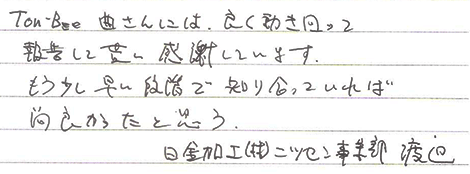 Ton-Bee 曲さんには、良く動き回って
報告して貰い感謝しています。
もう少し早い段階で知り合っていれば
尚良かったと思う。
日金加工(株)ニッセン事業部 渡迫